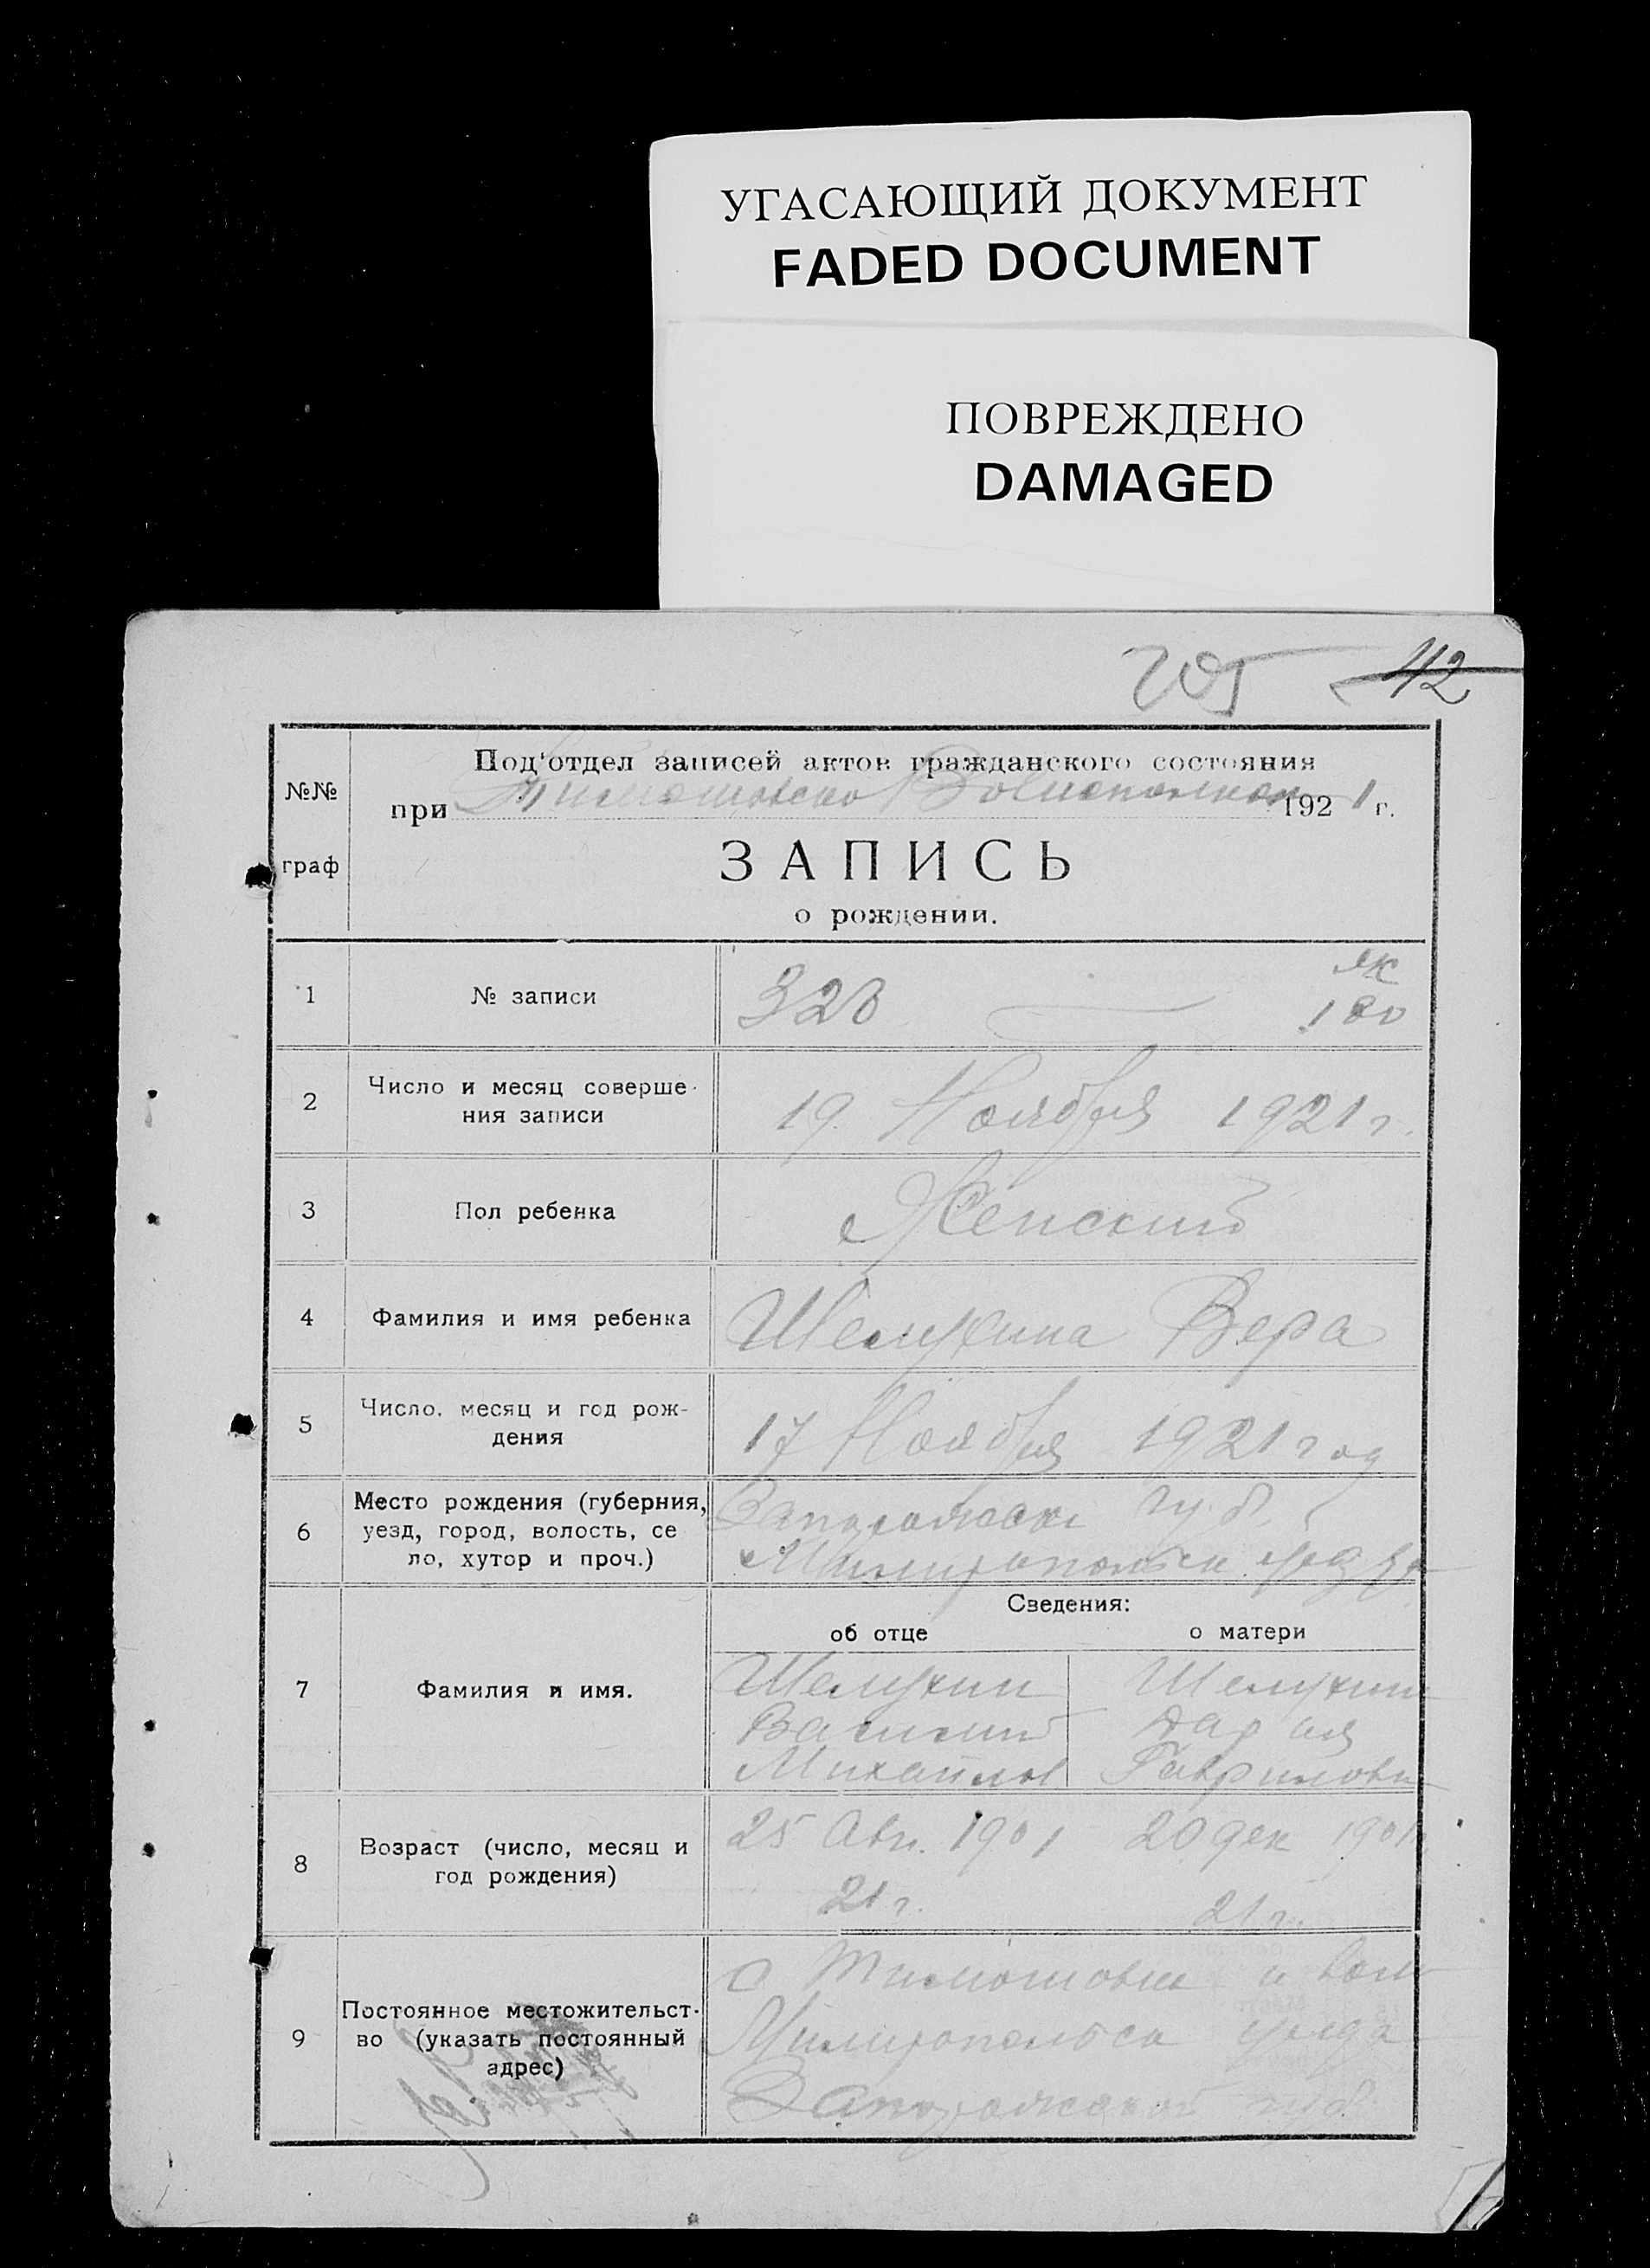 УГАСАЮЩИЙ ДОКУМЕНТ
FADED DOCUMENT
ПОВРЕЖДЕНО
DAMAGED
205 112
№№ граф
Под'отдел записей актов гражданского состояния
при Тимошовско Волисполком 1921 г.
ЗАПИСЬ
о рождении.
1 № записи 328 180
2 Число и месяц соверше-
ния записи 19 Ноября 1921 г.
3 Пол ребенка Женский
4 Фамилия и имя ребенка Шелухина Вера
5 Число, месяц и год рож-
дения 17 Ноября 1921 год
6 Место рождения (губерния,
уезд, город, волость, се
ло, хутор и проч.) Запорожск губ.
Милитопольск уезда
Сведения:
об отце о матери
7 Фамилия и имя.
Шелухин Шелухин
Василий Дария
Михайлов Гаврилови
8 Возраст (число, месяц и
год рождения)
25 Авг. 1901 20 дек 1901
21 г. 21 г.
9 Постоянное местожительст-
во (указать постоянный
адрес)
с Тимошовка и вол
Милитопольск уезда
Запорожской губ.